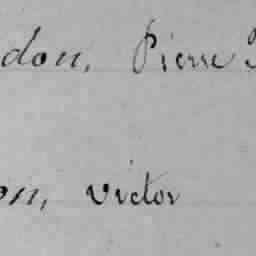 don, Pierre
on, Victor